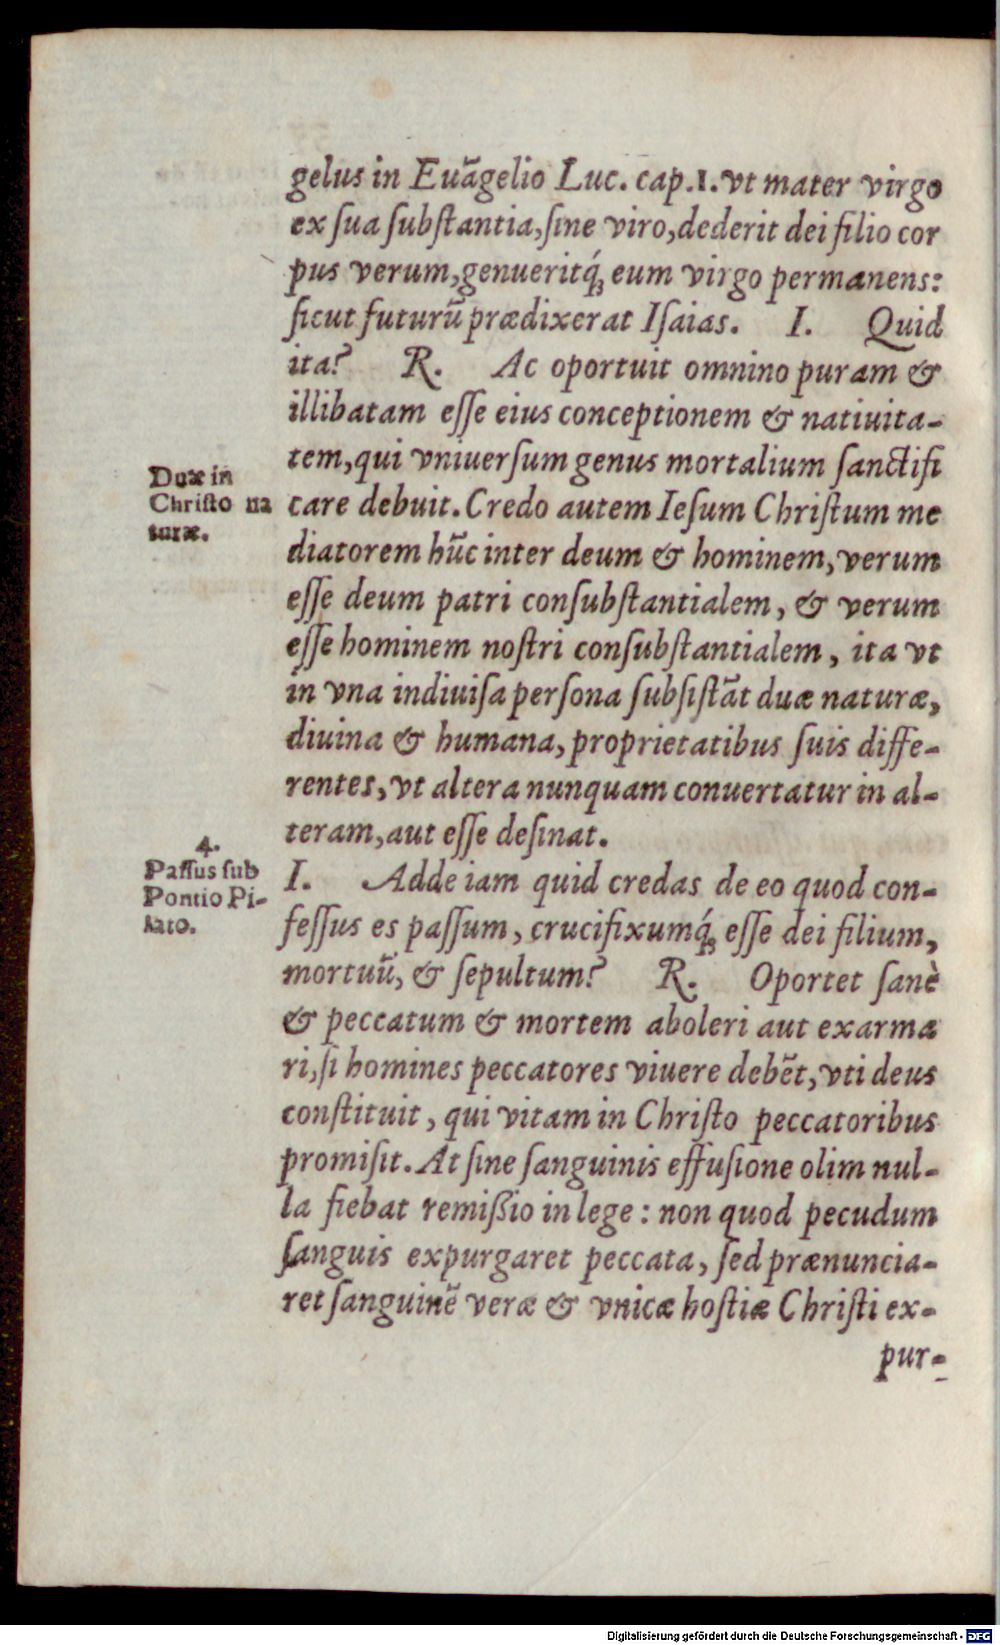 gelus in Euãgelio Luc. cap.1. vt mater virgo
ex ſua ſubſtantia, ſine viro, dederit dei filio cor
pus verum, genueritq́; eum virgo permanens:
ſicut futurũ prædixerat Iſaias. I. Quid
ita? R. Ac oportuit omnino puram &
illibatam eſſe eius conceptionem & natiuita-
tem, qui vniuerſum genus mortalium ſanctifi
Duæ in
Chriſto na
turæ.
care debuit. Credo autem Ieſum Chriſtum me
diatorem hũc inter deum & hominem, verum
eſſe deum patri conſubſtantialem, & verum
eſſe hominem noſtri conſubſtantialem, ita vt
in vna indiuiſa perſona ſubſiſtãt duæ naturæ,
diuina & humana, proprietatibus ſuis diffe-
rentes, vt altera nunquam conuertatur in al-
teram, aut eſſe deſinat.
4.
Paſſus ſub
Pontio Pi-
lato.
I. Adde iam quid credas de eo quod con-
feſſus es paſſum, crucifixumq́; eſſe dei filium,
mortuũ, & ſepultum? R. Oportet ſanè
& peccatum & mortem aboleri aut exarma
ri, ſi homines peccatores viuere debẽt, vti deus
conſtituit, qui vitam in Chriſto peccatoribus
promiſit. At ſine ſanguinis effuſione olim nul-
la fiebat remißio in lege: non quod pecudum
ſanguis expurgaret peccata, ſed prænuncia-
ret ſanguinẽ veræ & vnicæ hoſtiæ Chriſti ex-
pur-
Digitalisierung gefördert durch die Deutsche Forschungsgemeinschaft - DFG